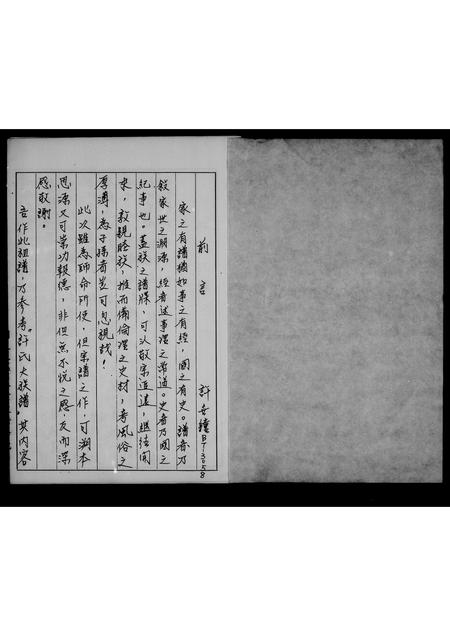 前言
許安鐘BT-3058
家之有譜猶如事之有經，國之有史。譜者乃
敘家世之淵源，經者述事理之常道。史者乃國之
紀事也。蓋族之譜牒，可以敬宗追遠，繼往開
來，敦親睦族，推而備倫理之史材，考風俗之
厚薄，為子孫者豈可忽視哉！
此次雖為師命所使，但宗譜之作，可溯本
思源又可崇功報德，非但無不悅之感，反而深
感敬謝。
吾作此祖譜，乃參考。許氏大族譜，其內容